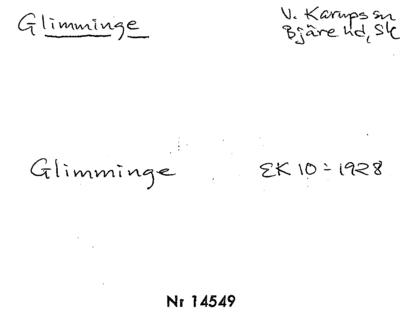 Glimminge
V. Karups sn
Bjäre hd, Sk
Glimminge EK 10 - 1928
Nr 14549